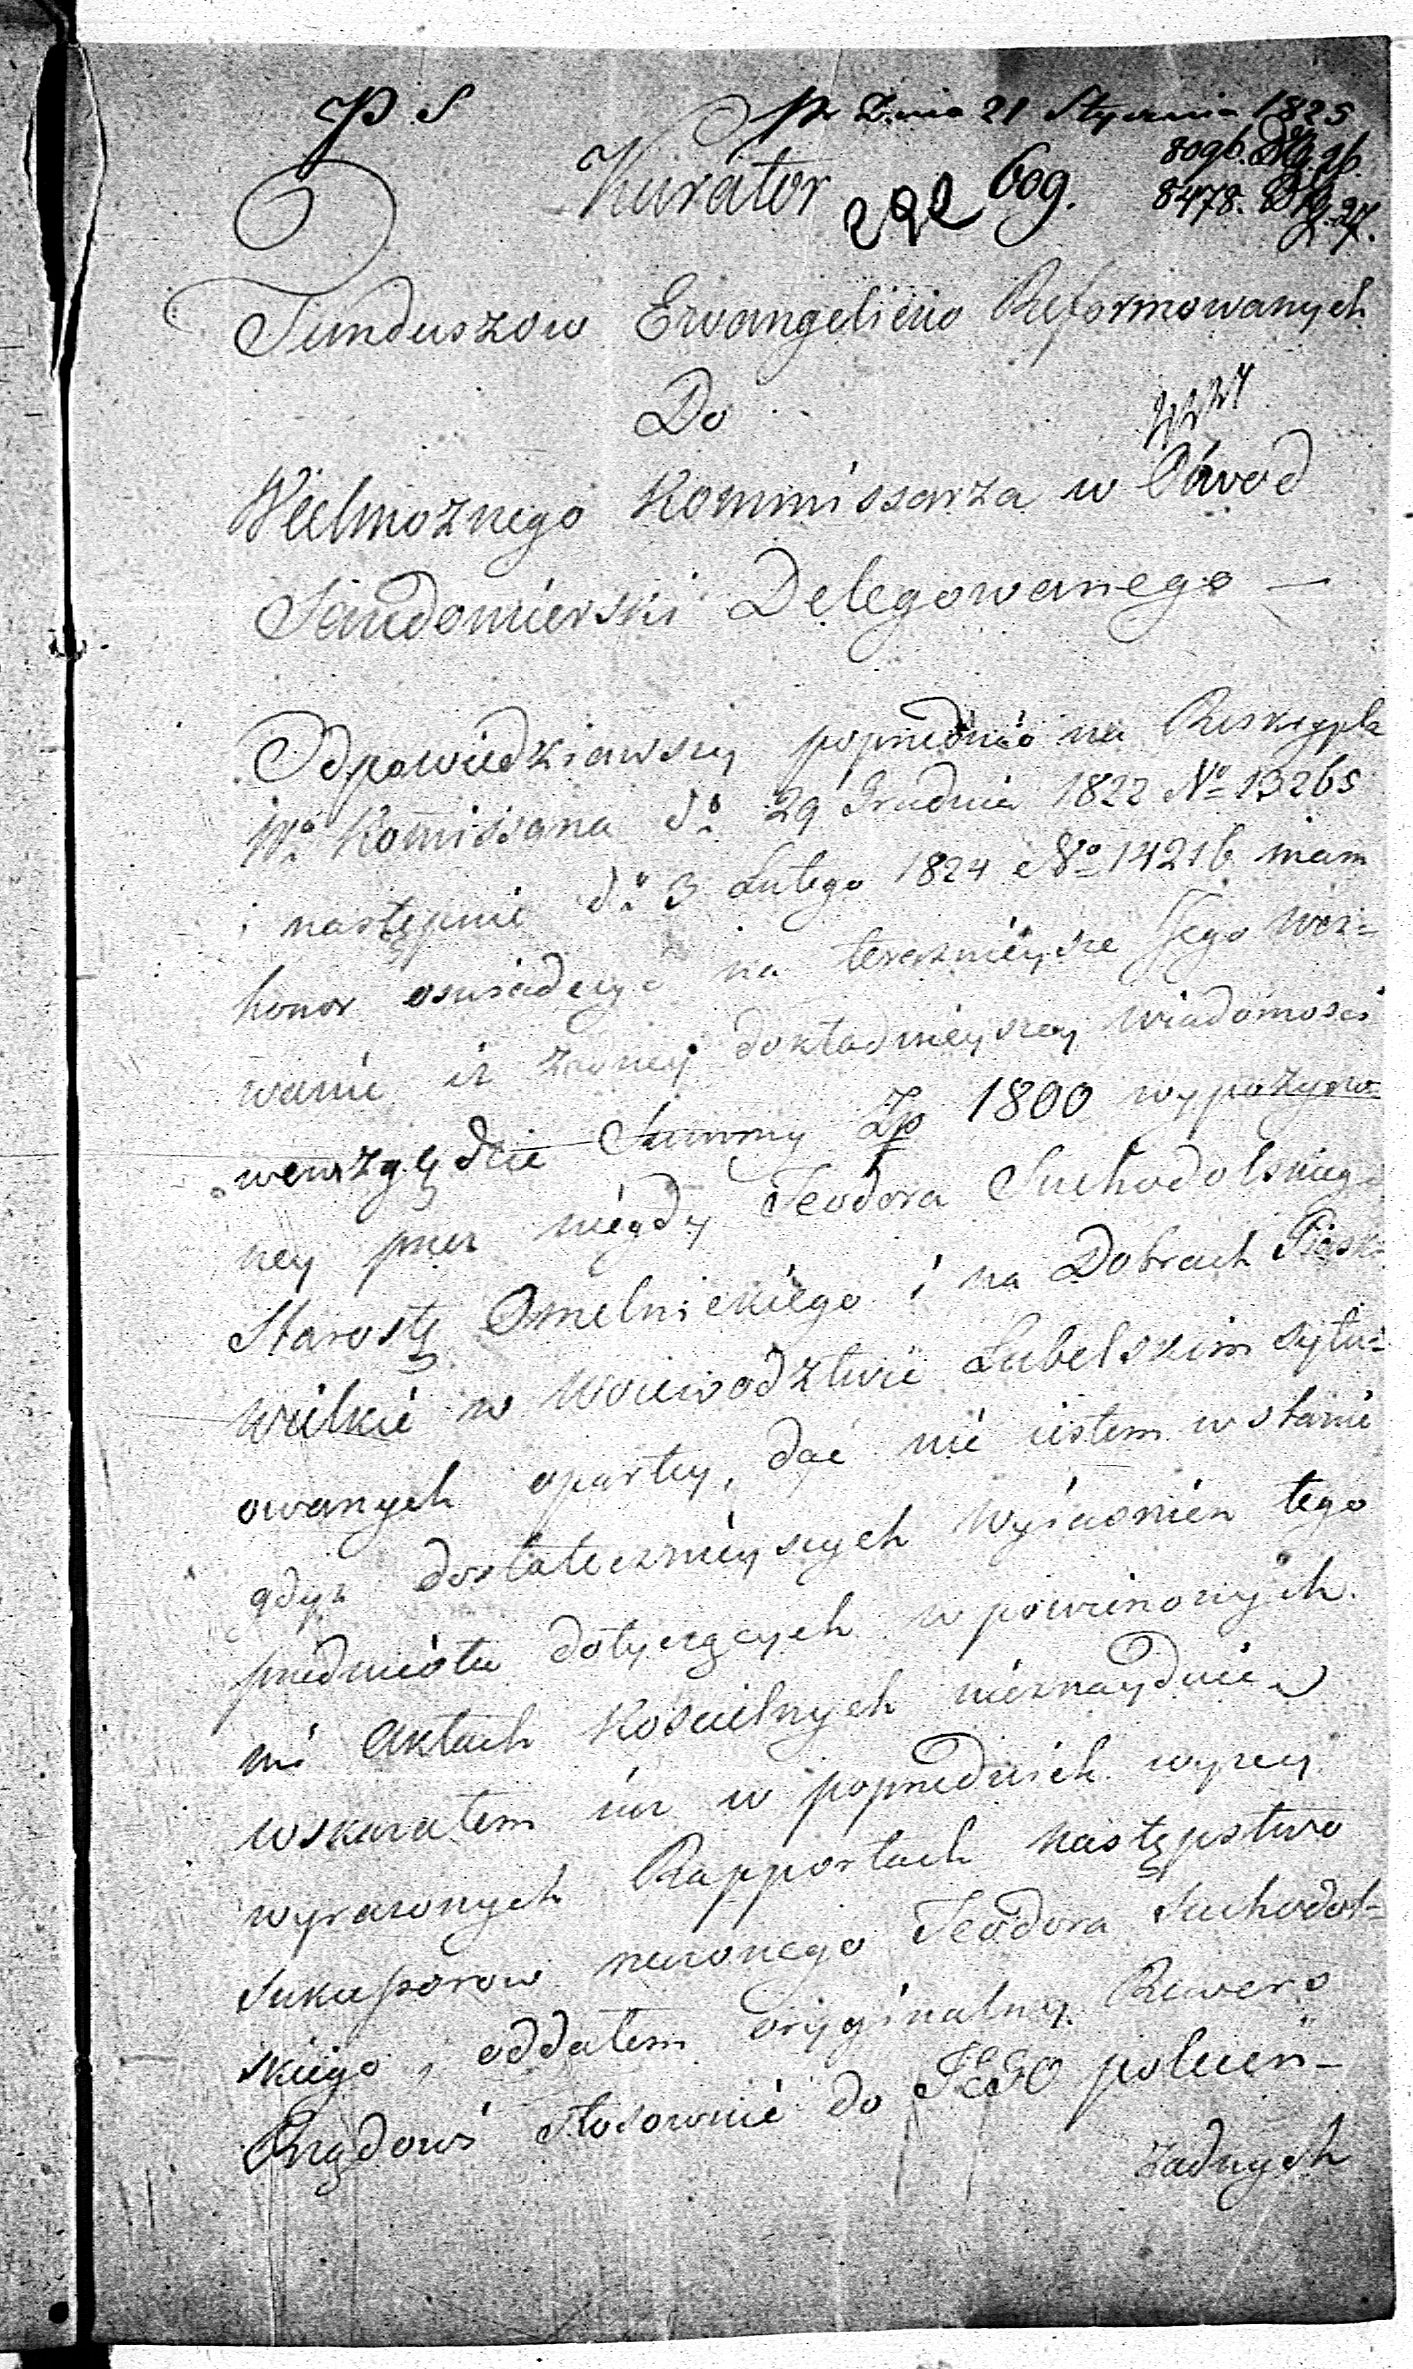 P. S pr Dnia 21 Stycznia 1825
Kurator 222 609. 8096.
8478.
Funduszow Ewangelicko Reformowanych
Do
Wielmożnego Kommissarza w Obwod
Sandomierski Delegowanego —
Odpowiedziawszy poprzednio na Reskrypta
Wo Komissarza do 29 Grudnia 1822 No 13265
i następnie do 3 Lutego 1824 No 14216 mam
honor oświadczyć na teraznieysze Jego wez=
wanie iż żadney dokładnieyszey wiadomości
wewzględzie Summy Zp 1800 wypożyczo=
ney przez niegdy Teodora Suchodolskiego
Starostę Omelnickiego i na Dobrach Piask
wielkie w Woiewodztwie Lubelskim sytu=
owanych opartey, dać nie iestem w stanie
gdyż dostatecznieyszych wyiaśnien tego
przedmiotu dotyczących w powierzonych
mi Aktach Kościelnych nieznayduię
wskazałem iuż w poprzednich wyżey
wyrażonych Rapportach następstwo
Sukcessorow rzeczonego Teodora Suchodol=
skiego, oddałem oryginalny Rewers
Rządowi stosownie do JEGO poleceń —
żadnych